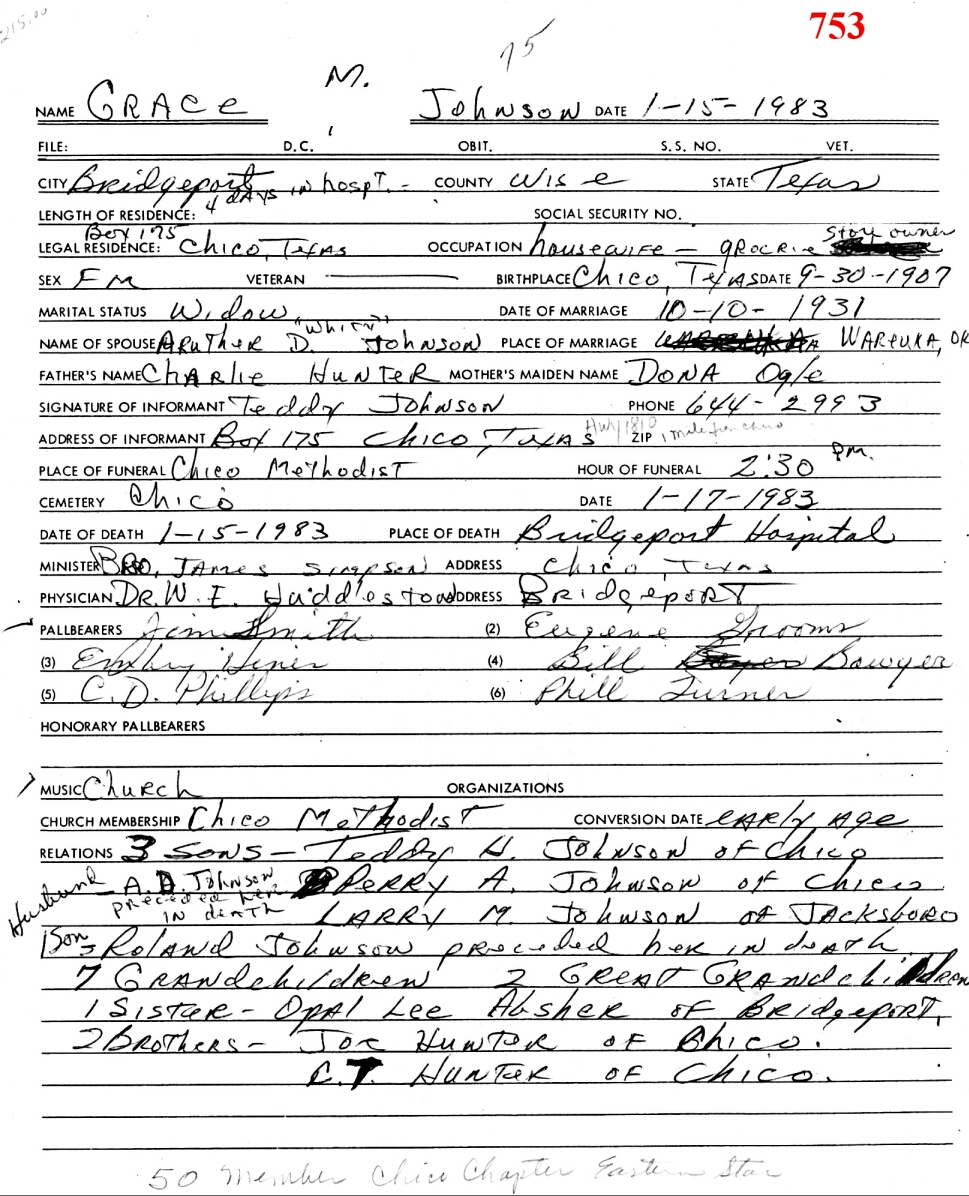 215.00
753
75
M.
NAME GRACE Johnson DATE 1-15-1983
FILE: D.C. OBIT. S.S. NO. VET.
CITY Bridgeport 4 days in hospt. - COUNTY Wise STATE Texas
LENGTH OF RESIDENCE: SOCIAL SECURITY NO.
Box 175 Store owner
LEGAL RESIDENCE: Chico, Texas OCCUPATION housewife - grocrie
SEX Fm VETERAN BIRTHPLACE Chico, Texas DATE 9-30-1907
MARITAL STATUS Widow DATE OF MARRIAGE 10-10-1931
"Whity"
NAME OF SPOUSE Aruther D. Johnson PLACE OF MARRIAGE WAREUKA, OK
FATHER'S NAME Charlie Hunter MOTHER'S MAIDEN NAME DONA Ogle
SIGNATURE OF INFORMANT Teddy Johnson PHONE 644-2993
ADDRESS OF INFORMANT Box 175 Chico Texas Hwy 1810 ZIP 1 mile from chico
PLACE OF FUNERAL Chico Methodist HOUR OF FUNERAL 2:30 pm.
CEMETERY Chico DATE 1-17-1983
DATE OF DEATH 1-15-1983 PLACE OF DEATH Bridgeport Hospital
MINISTER Bro. James Simpson ADDRESS Chico, Texas
PHYSICIAN Dr. W. E. Huddleston ADDRESS Bridgeport
PALLBEARERS Jim Smith (2) Eugene Grooms
(3) Embry Hiner (4) Bill Bowyer
(5) C.D. Phillips (6) Phill Turner
HONORARY PALLBEARERS
MUSIC Church ORGANIZATIONS
CHURCH MEMBERSHIP Chico Methodist CONVERSION DATE early age
RELATIONS 3 Sons - Teddy H. Johnson of Chico
Husband - A. D. Johnson preceded her in death Perry A. Johnson of Chico
Larry M. Johnson of Jacksboro
1 Son - Roland Johnson preceded her in death
7 Grandchildren 2 Great Grandchildren
1 Sister - Opal Lee Absher of Bridgeport,
2 Brothers - Joe Hunter of Chico.
C.T. Hunter of Chico.
50 Member Chico Chapter Eastern Star